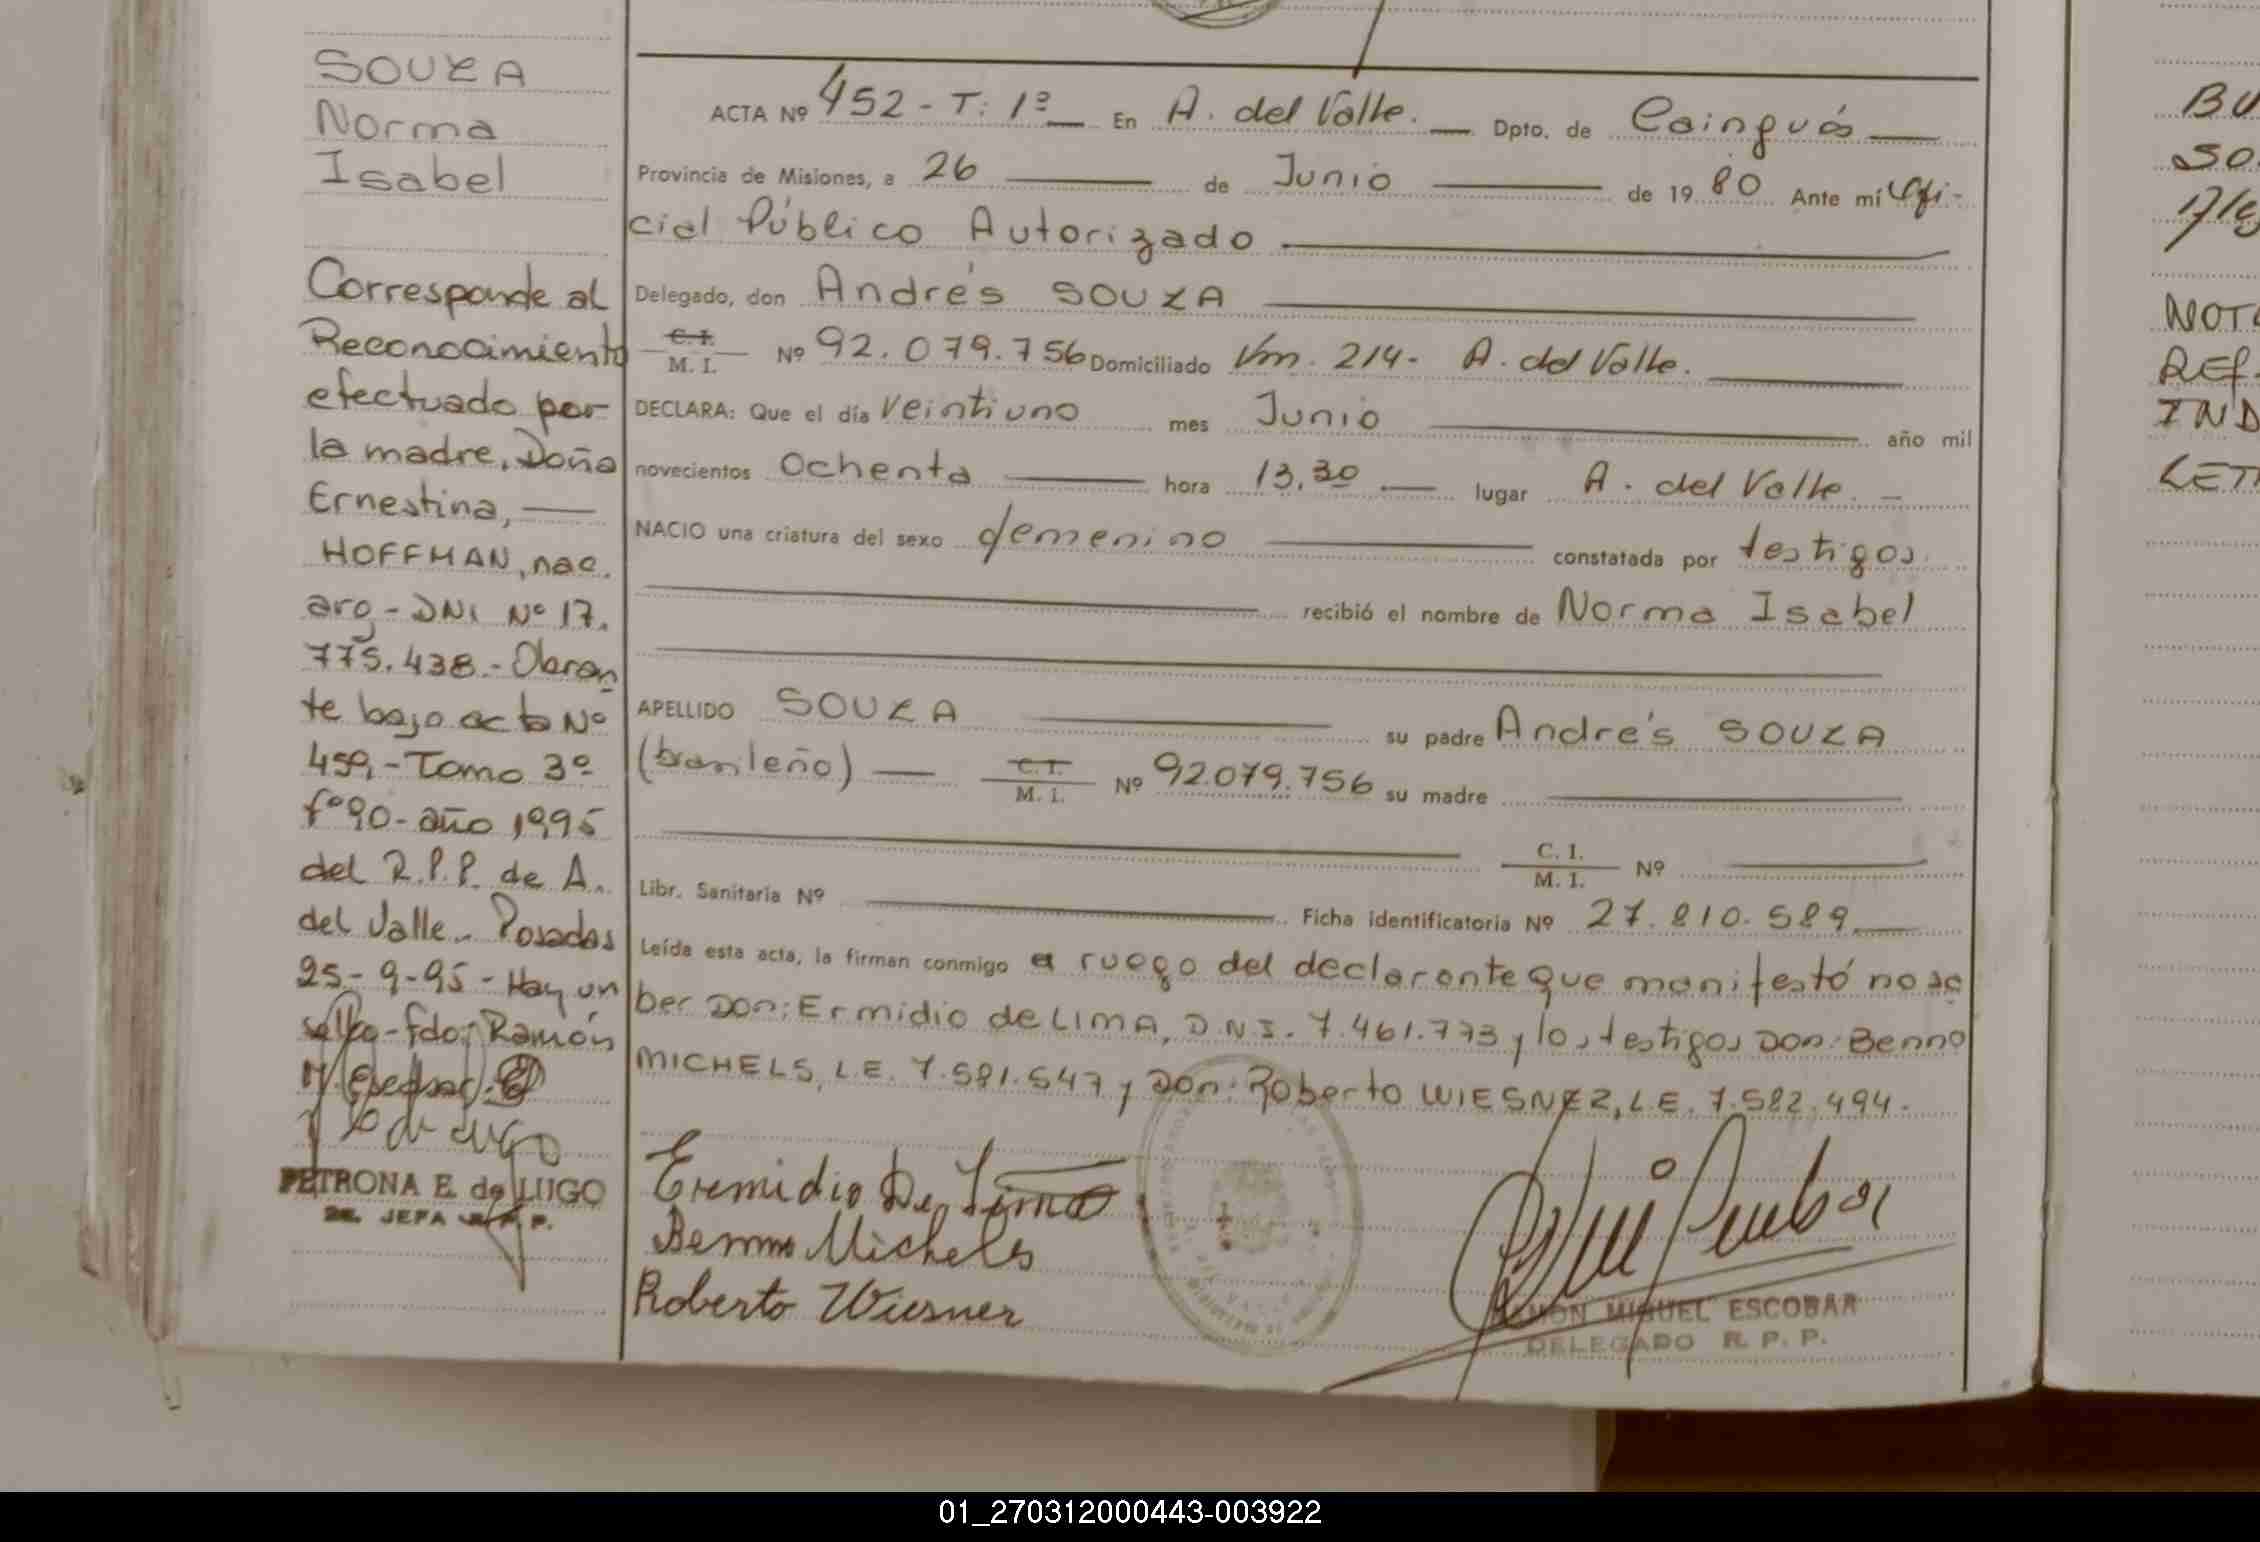 SOUZA
Norma
Isabel
Corresponde al
Reconocimiento
efectuado por
la madre, Doña
Ernestina,
HOFFMAN, nac.
arg- DNI Nº 17.
775.438.- Obran
te bajo acta Nº
459,- Tomo 3º
fº 90- año 1995
del R.P.P. de A.
del Valle.- Posadas
25-9-95- Hay un
sello- fdo: Ramón
M. Escobar.
PETRONA E. de LUGO
JEFA R. P. P.
ACTA Nº 452 - T: 1º En A. del Valle. Dpto. de Cainguás
Provincia de Misiones, a 26 de Junio de 1980 Ante mí Ofi-
cial Público Autorizado
Delegado, don Andrés SOUZA
C.I.
M. I. Nº 92.079.756 Domiciliado Km. 214- A. del Valle.
DECLARA: Que el día veintiuno mes Junio año mil
novecientos Ochenta hora 13,30 lugar A. del Valle.
NACIO una criatura del sexo femenino constatada por testigos
recibió el nombre de Norma Isabel
APELLIDO SOUZA su padre Andrés SOUZA
(brasileño) C.I.
M. I. Nº 92.079.756 su madre
C. I.
M. I. Nº
Libr. Sanitaria Nº Ficha identificatoria Nº 27.810.589
Leída esta acta, la firman conmigo a ruego del declarante que manifestó no sa
ber Don: Ermidio de LIMA, D.N.I. 7.461.773 y los testigos Don: Benno
MICHELS, L.E. 7.581.547 y Don: Roberto WIESNER, L.E. 7.582.494.
Eremidio De Lima
Benno Michels
Roberto Wiesner
RAMON MIGUEL ESCOBAR
DELEGADO R. P. P.
BU
SO
NOT
REF.
IND
LET
01_270312000443-003922